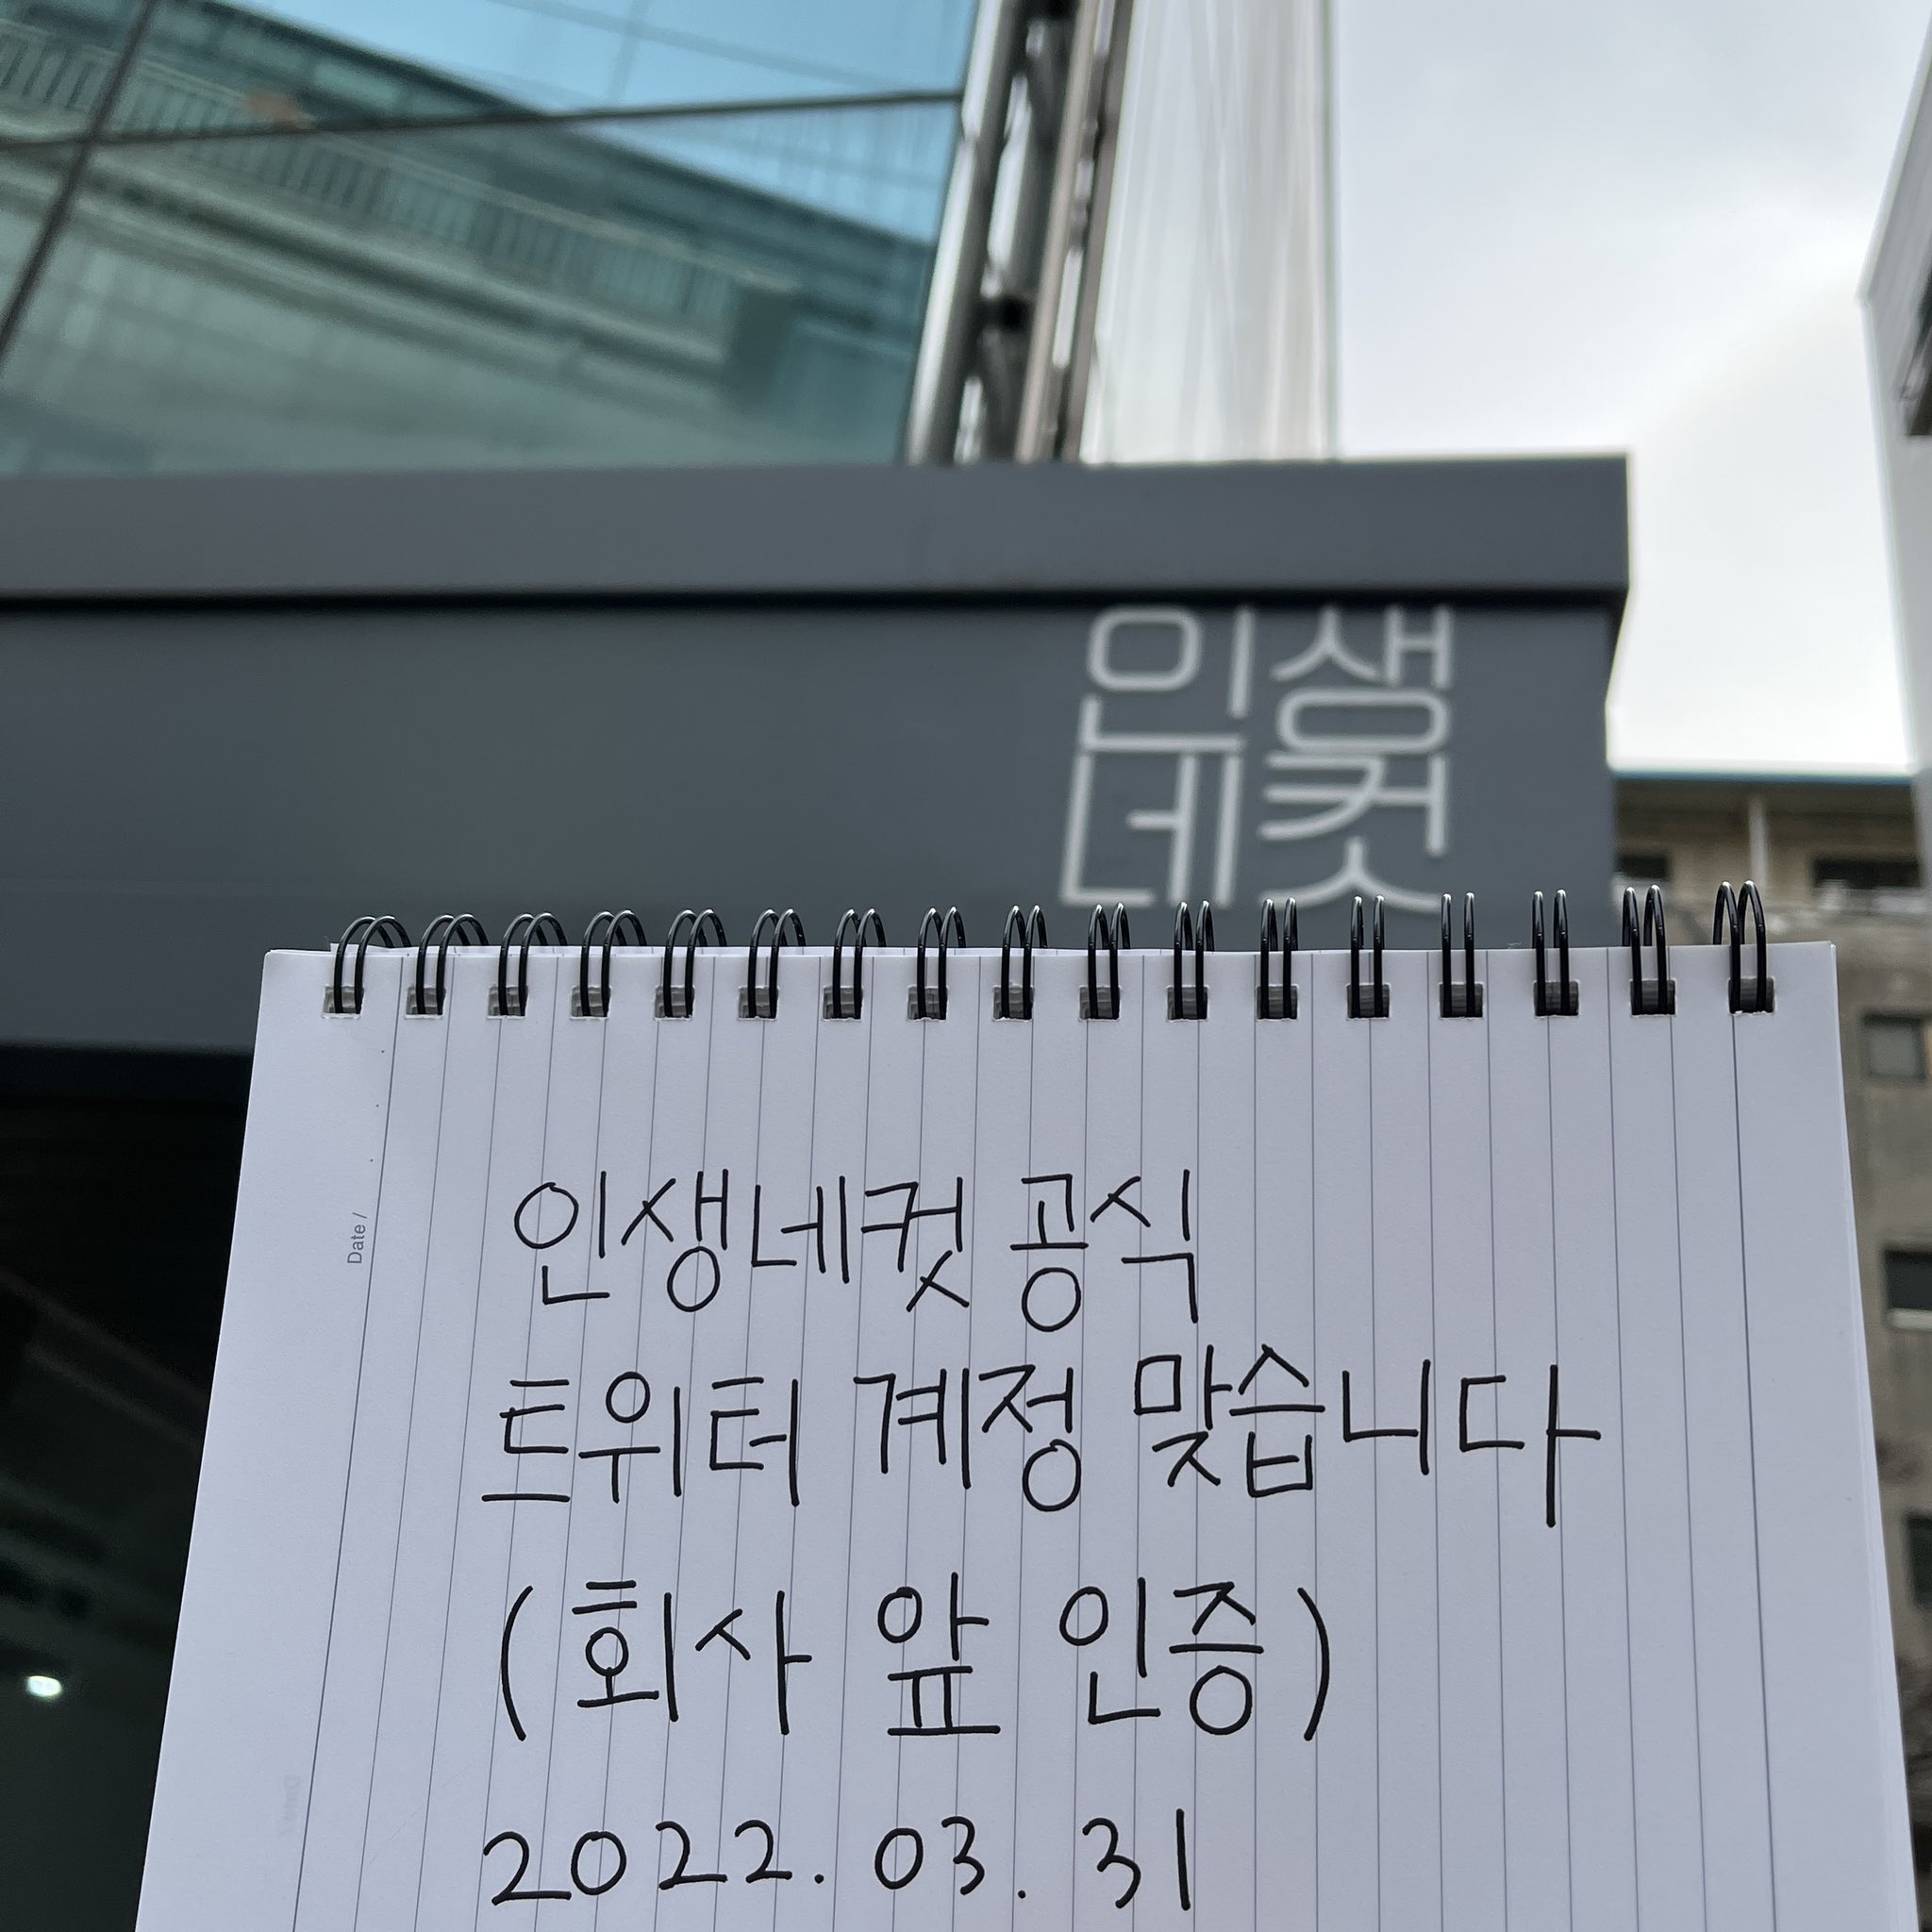 인생
네컷
Date /
인생네컷 공식
트위터 계정 맞습니다
(회사 앞 인증)
2022. 03. 31